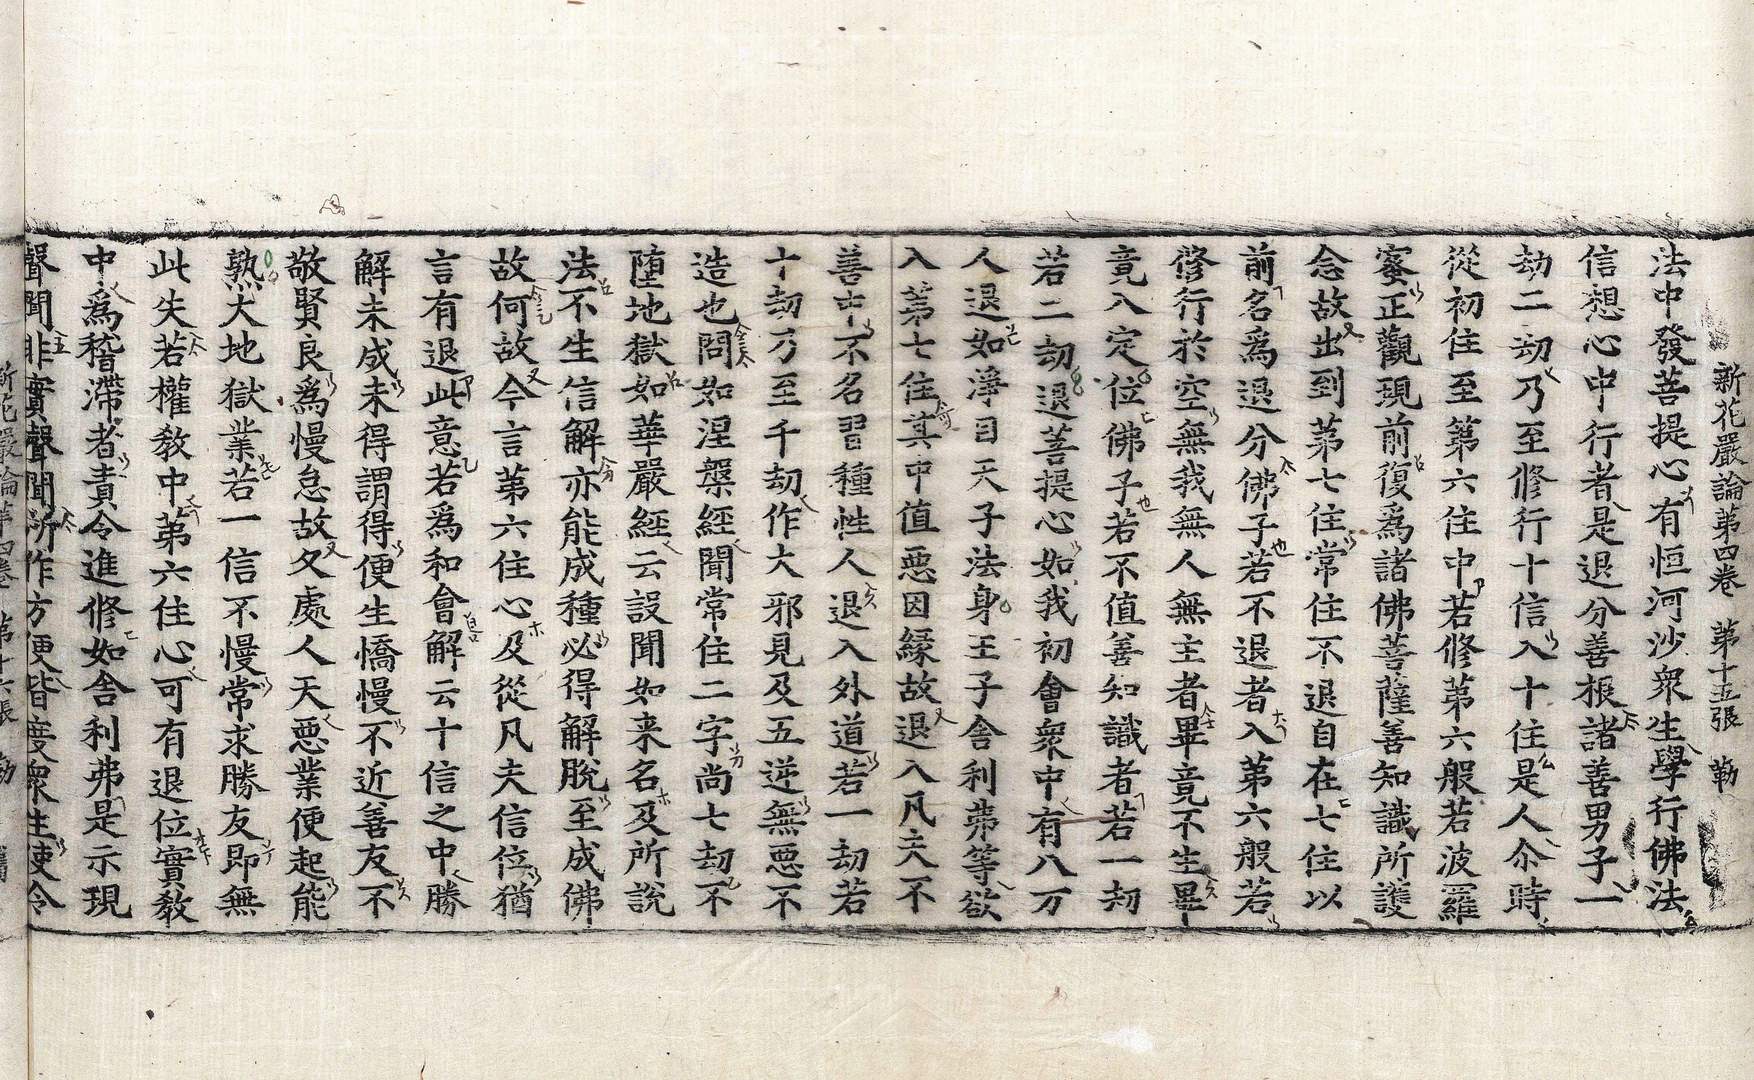 新花嚴論第四卷 第十五張 勒
法中發菩提心有恒河沙衆生學行佛法
信想心中行者是退分善根諸善男子一
劫二劫乃至修行十信入十住是人尒時
從初住至第六住中若修第六般若波羅
蜜正觀現前復爲諸佛菩薩善知識所護
念故出到第七住常住不退自在七住以
前名爲退分佛子若不退者入第六般若
修行於空無我無人無主者畢竟不生畢
竟入定位佛子若不值善知識者若一劫
若二劫退菩提心如我初會衆中有八万
人退如淨目天子法身王子舍利弗等欲
入第七住其中值惡因縁故退入凡夫不
善中不名習種性人退入外道若一劫若
十劫乃至千劫作大邪見及五逆無惡不
造也問如涅槃經聞常住二字尚七劫不
堕地獄如華嚴經云設聞如来名及所說
法不生信解亦能成種必得解脫至成佛
故何故今言第六住心及從凡夫信位猶
言有退此意若爲和會解云十信之中勝
解未成未得謂得便生憍慢不近善友不
敬賢良爲慢怠故久處人天惡業便起能
熟大地獄業若一信不慢常求勝友即無
此失若權敎中第六住心可有退位實敎
中爲稽滯者責令進修如舍利弗是示現
聲聞非實聲聞所作方便皆度衆生使令